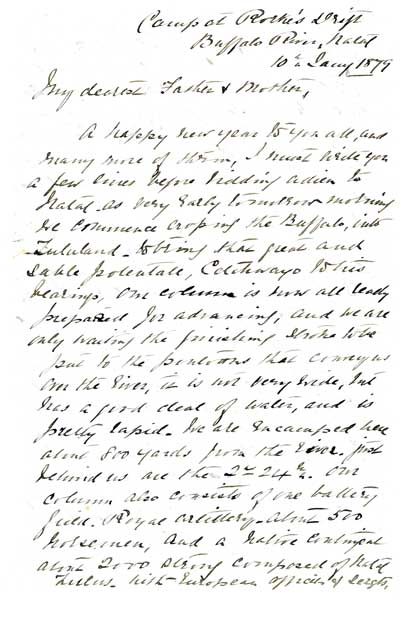 Camp at Rorke's Drift
Buffalo River, Natal
10th Jany 1879
My dearest Father & Mother,
A happy new year to you all, and
many more of them, I must write you
a few lines before bidding adieu to
Natal as very early tomorrow morning
we commence crossing the Buffalo, into
Zululand - to bring that great and
sable potentate, Cetchwayo to his
bearings, our column is now all ready
prepared for advancing, and we are
only waiting the finishing stroke to be
put to the pontoons that convey us
over the river, it is not very wide, but
has a good deal of water, and is
pretty rapid. We are encamped here
about 800 yards from the river. just
behind us are the 2nd 24th. Our
column also consists of one battery
field. Royal artillery - about 500
horsemen, and a native contingent
about 2000 strong composed of Natal
Zulus. with European officers & Sergts,